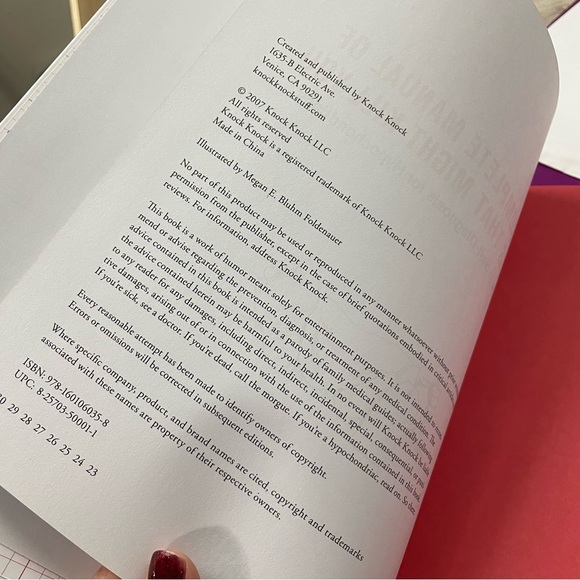 Created and published by Knock Knock
1635-B Electric Ave.
Venice, CA 90291
knockknockstuff.com
© 2007 Knock Knock LLC
All rights reserved
Knock Knock is a registered trademark of Knock Knock LLC
Made in China
Illustrated by Megan E. Bluhm Foldenauer
No part of this product may be used or reproduced in any manner whatsoever without prior
permission from the publisher, except in the case of brief quotations embodied in critical
reviews. For information, address Knock Knock.
This book is a work of humor meant solely for entertainment purposes. It is not intended to
mend or advise regarding the prevention, diagnosis, or treatment of any medical condition. The
advice contained in this book is intended as a parody of family medical guides; actually following
the advice contained herein may be harmful to your health. In no event will Knock Knock be
to any reader for any damages, including direct, indirect, incidental, special, consequential, or
tive damages, arising out of or in connection with the use of the information contained in this book.
If you're sick, see a doctor. If you're dead, call the morgue. If you're a hypochondriac, read on. So there.
Every reasonable attempt has been made to identify owners of copyright.
Errors or omissions will be corrected in subsequent editions.
Where specific company, product, and brand names are cited, copyright and trademarks
associated with these names are property of their respective owners.
ISBN: 978-160106035-8
UPC: 8-25703-50001-1
29 28 27 26 25 24 23